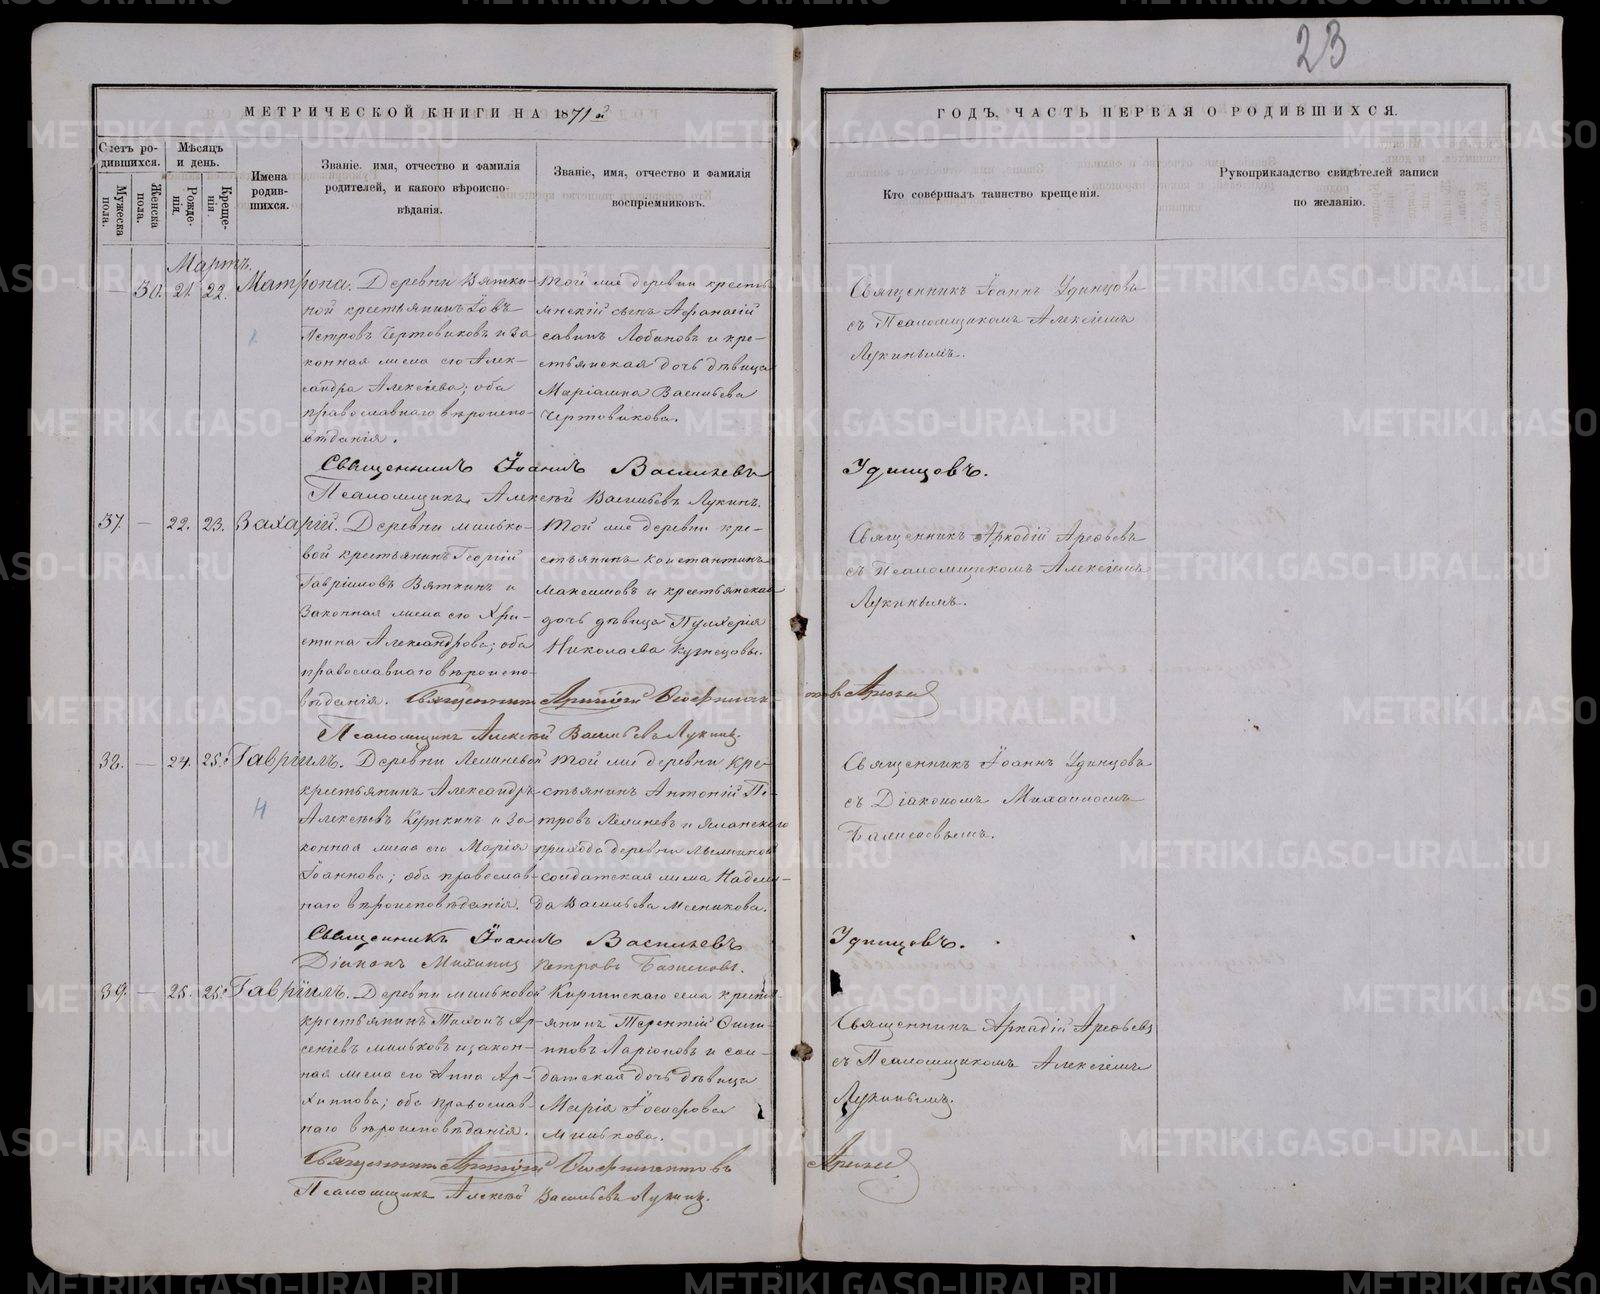 23
МЕТРИЧЕСКОЙ КНИГИ НА 1871й
ГОДЪ, ЧАСТЬ ПЕРВАЯ О РОДИВШИХСЯ.
Счетъ родившихся.
Мужеска пола.
Женска пола.
Мѣсяцъ и день.
Рожденія.
Крещенія.
Имена родившихся.
Званіе, имя, отчество и фамилія родителей, и какого вѣроисповѣданія.
Званіе, имя, отчество и фамилія воспріемниковъ.
Кто совершалъ таинство крещенія.
Рукоприкладство свидѣтелей записи по желанію.
Мартъ.
30. 21. 22. Матрона.
Деревни Вятки-
ной крестьянинъ Іовъ
Петровъ Чертовиковъ и за
конная жена его Алек-
сандра Алексіева; оба
православнаго вѣроиспо-
вѣданія.
Той же деревни кресть
янскій сынъ Афанасій
Савинъ Лобановъ и кре-
стьянская дочь дѣвица
Маріамна Васильева
Чертовикова.
Священникъ Іоаннъ Удинцовъ
съ Псаломщикомъ Алексіемъ
Лукинымъ.
Священникъ Іоаннъ Васильевъ Удинцовъ.
Псаломщикъ Алексѣй Васильевъ Лукинъ.
37. — 22. 23. Захарій.
Деревни Милько-
вой крестьянинъ Георгій
Гавріиловъ Вяткинъ и
законная жена его Хри-
стина Александрова; оба
православнаго вѣроиспо-
вѣданія.
Той же деревни кре-
стьянинъ Константинъ
Максимовъ и крестьянская
дочь дѣвица Пулхерія
Николаева Кузнецовы.
Священникъ Аркадій Арефьевъ
съ Псаломщикомъ Алексіемъ
Лукинымъ.
Священникъ Аркадій
Псаломщикъ Алексѣй Васильевъ Лукинъ.
38. — 24. 25. Гавріилъ.
Деревни Лемневой
крестьянинъ Александръ
Алексѣевъ и за
конная жена его Марія
Іоаннова; оба православ-
наго вѣроисповѣданія.
Той же деревни кре-
стьянинъ Антоній Пе-
тровъ и
прихода деревни
солдатская жена Надеж-
да Васильева
Священникъ Іоаннъ Удинцовъ
съ Діакономъ Михаиломъ
Священникъ Іоаннъ Васильевъ Удинцовъ.
Діаконъ Михаилъ Петровъ
Н
39. — 25. 25. Гавріилъ.
Деревни Мильковой
крестьянинъ Тихонъ Ар-
сеніевъ Мильковъ и закон-
ная жена его Анна Ар-
хипова; оба православ-
наго вѣроисповѣданія.
села кресть-
янинъ Терентій
Ларіоновъ и сол-
датская дочь дѣвица
Марія Іосифова
Милькова.
Священникъ Аркадій Арефьевъ
съ Псаломщикомъ Алексіемъ
Лукинымъ.
Священникъ Аркадій
Псаломщикъ Алексѣй Васильевъ Лукинъ.
METRIKI.GASO-URAL.RU